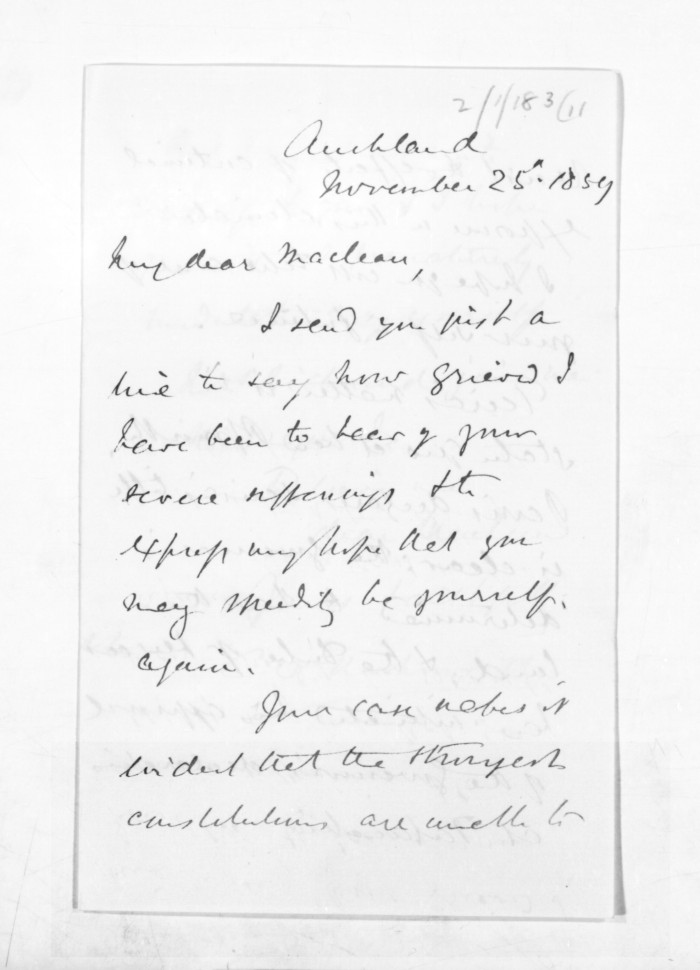 2/1/183/11
Auckland
November 25th. 1859
My dear Maclean,
I send you just a
line to say how grieved I
have been to hear of your
severe sufferings & to
express my hope that you
may speedily be yourself
again.
Your case makes it
evident that the strongest
constitutions are unable to